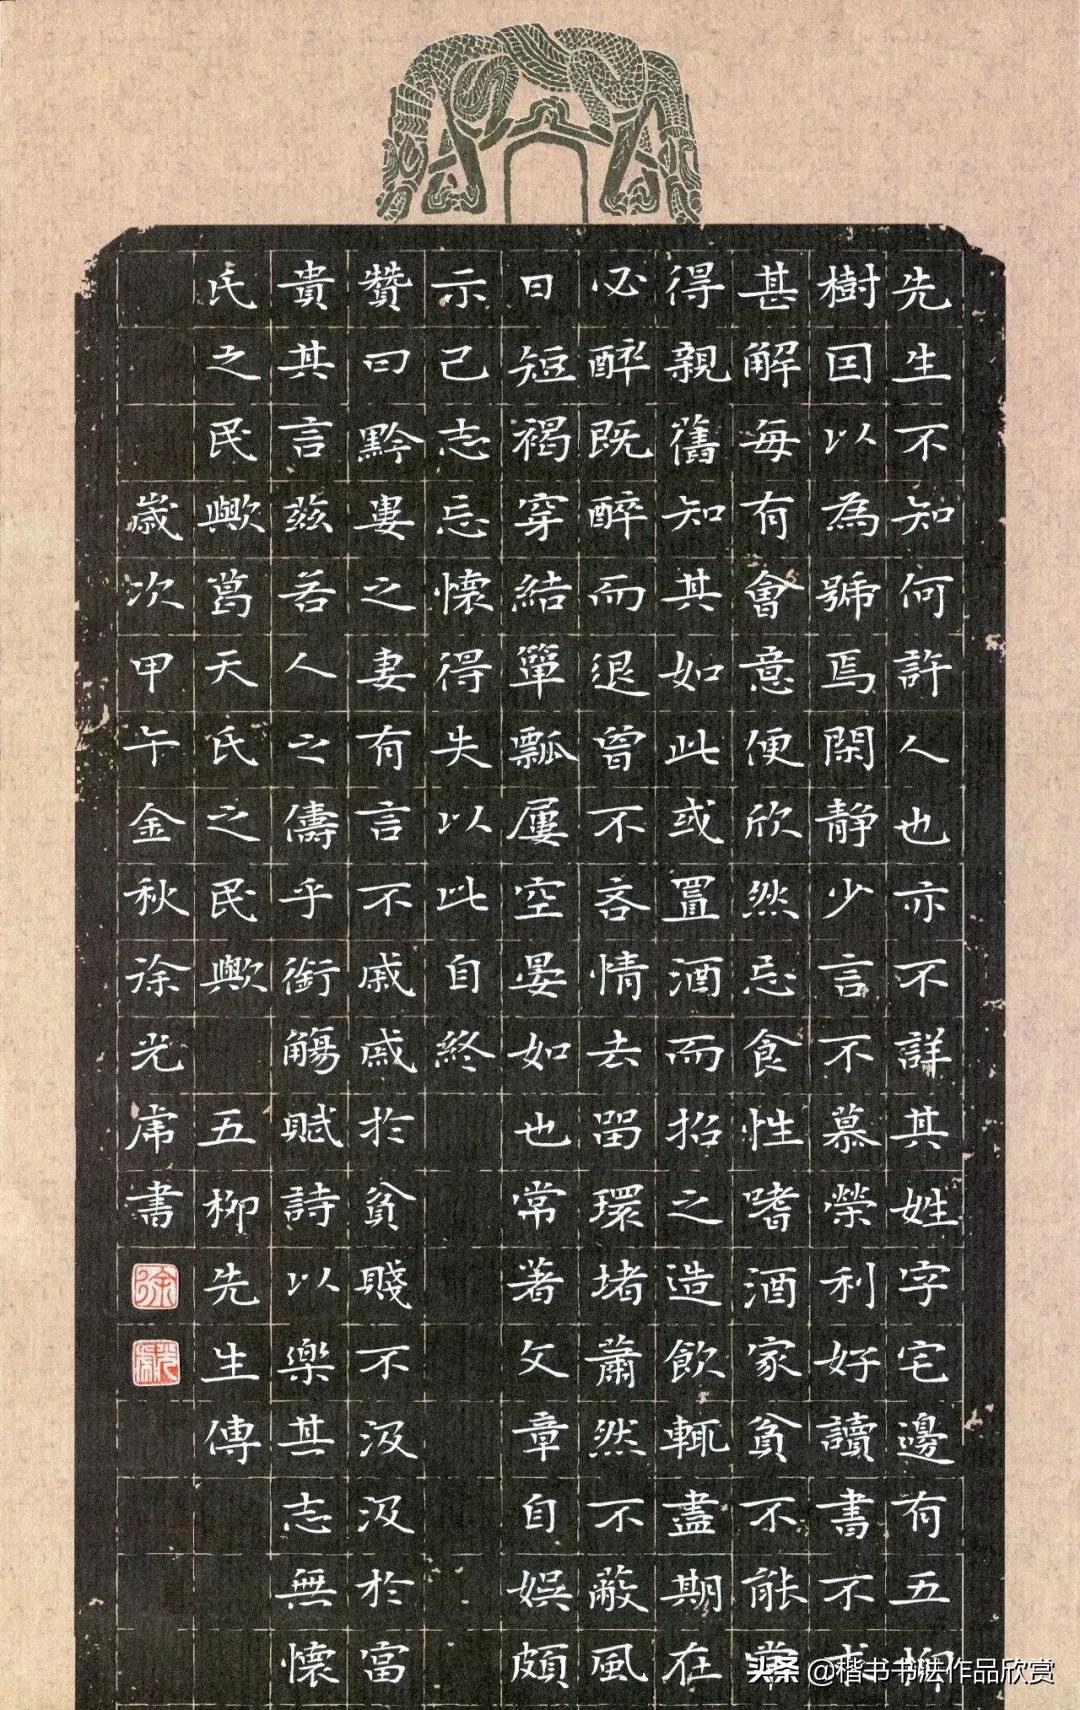 先生不知何許人也亦不詳其姓字宅邊有五柳
樹因以為號焉閑靜少言不慕榮利好讀書不求
甚解每有會意便欣然忘食性嗜酒家貧不能常
得親舊知其如此或置酒而招之造飲輒盡期在
必醉既醉而退曾不吝情去留環堵蕭然不蔽風
日短褐穿結簞瓢屢空晏如也常著文章自娛頗
示己志忘懷得失以此自終
贊曰黔婁之妻有言不戚戚於貧賤不汲汲於富
貴其言茲若人之儔乎銜觴賦詩以樂其志無懷
氏之民歟葛天氏之民歟 五柳先生傳
歲次甲午金秋徐光虎書
徐
光虎
头条 @楷书书法作品欣赏